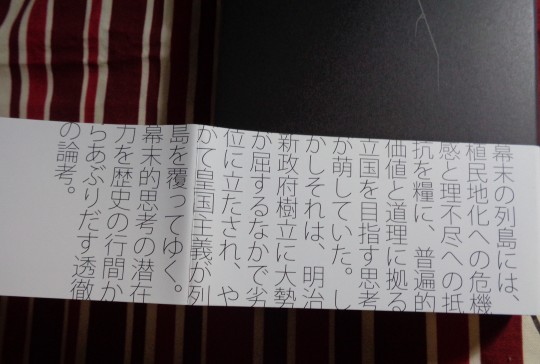 幕末の列島には、
植民地化への危機
感と理不尽への抵
抗を糧に、普遍的
価値と道理に拠る
立国を目指す思考
が萌していた。し
かしそれは、明治
新政府樹立に大勢
が屈するなかで劣
位に立たされ、や
がて皇国主義が列
島を覆ってゆく。
幕末的思考の潜在
力を歴史の行間か
らあぶりだす透徹
の論考。